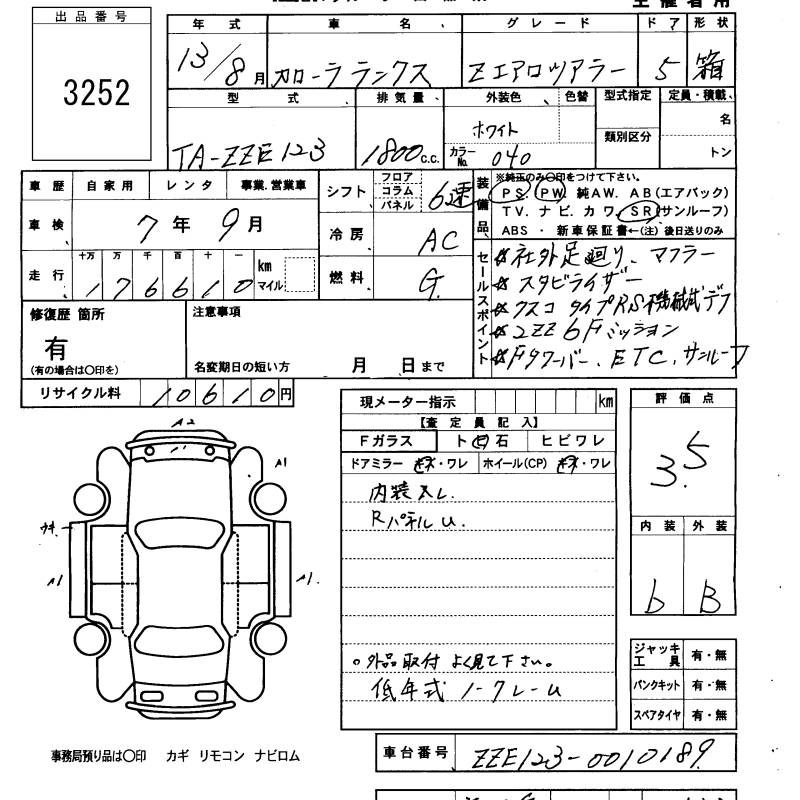 出品番号
3252
年式 車名 グレード ドア 形状
13/8月 カローラランクス Zエアロツアラー 5 箱
型式 排気量 外装色 色替 型式指定 定員・積載
名
ホワイト 類別区分
TA-ZZE123 1800c.c. カラーNo. 040 トン
車歴 自家用 レンタ 事業.営業車
シフト フロア コラム パネル 6速
装備品 ※純正のみ〇印をつけて下さい。
PS. PW. 純AW. AB(エアバック)
TV. ナビ. カワ. SR(サンルーフ)
ABS ・ 新車保証書←(注) 後日送りのみ
車検 7年9月
冷房 AC
走行 十万 万 千 百 十 一 km マイル
176610
燃料 G.
セールスポイント
社外足廻り、マフラー
スタビライザー
クスコ タイプRS機械式デフ
2ZZ 6Fミッション
Fタワーバー、ETC、サンルーフ
修復歴 箇所
有
(有の場合は〇印を)
注意事項
名変期日の短い方 月 日まで
リサイクル料 10610円
現メーター指示 km
【査定員記入】
Fガラス ト 石 ヒビワレ
ドアミラー キズ・ワレ ホイール(CP) キズ・ワレ
内装スレ.
RパネルU.
。外品取付 よく見て下さい。
低年式 ノークレーム
評価点
3.5
内装 外装
b B
A2
A1
ウキ
A1
A1.
ジャッキ工具 有・無
パンクキット 有・無
スペアタイヤ 有・無
事務局預り品は〇印 カギ リモコン ナビロム
車台番号 ZZE123-0010189.